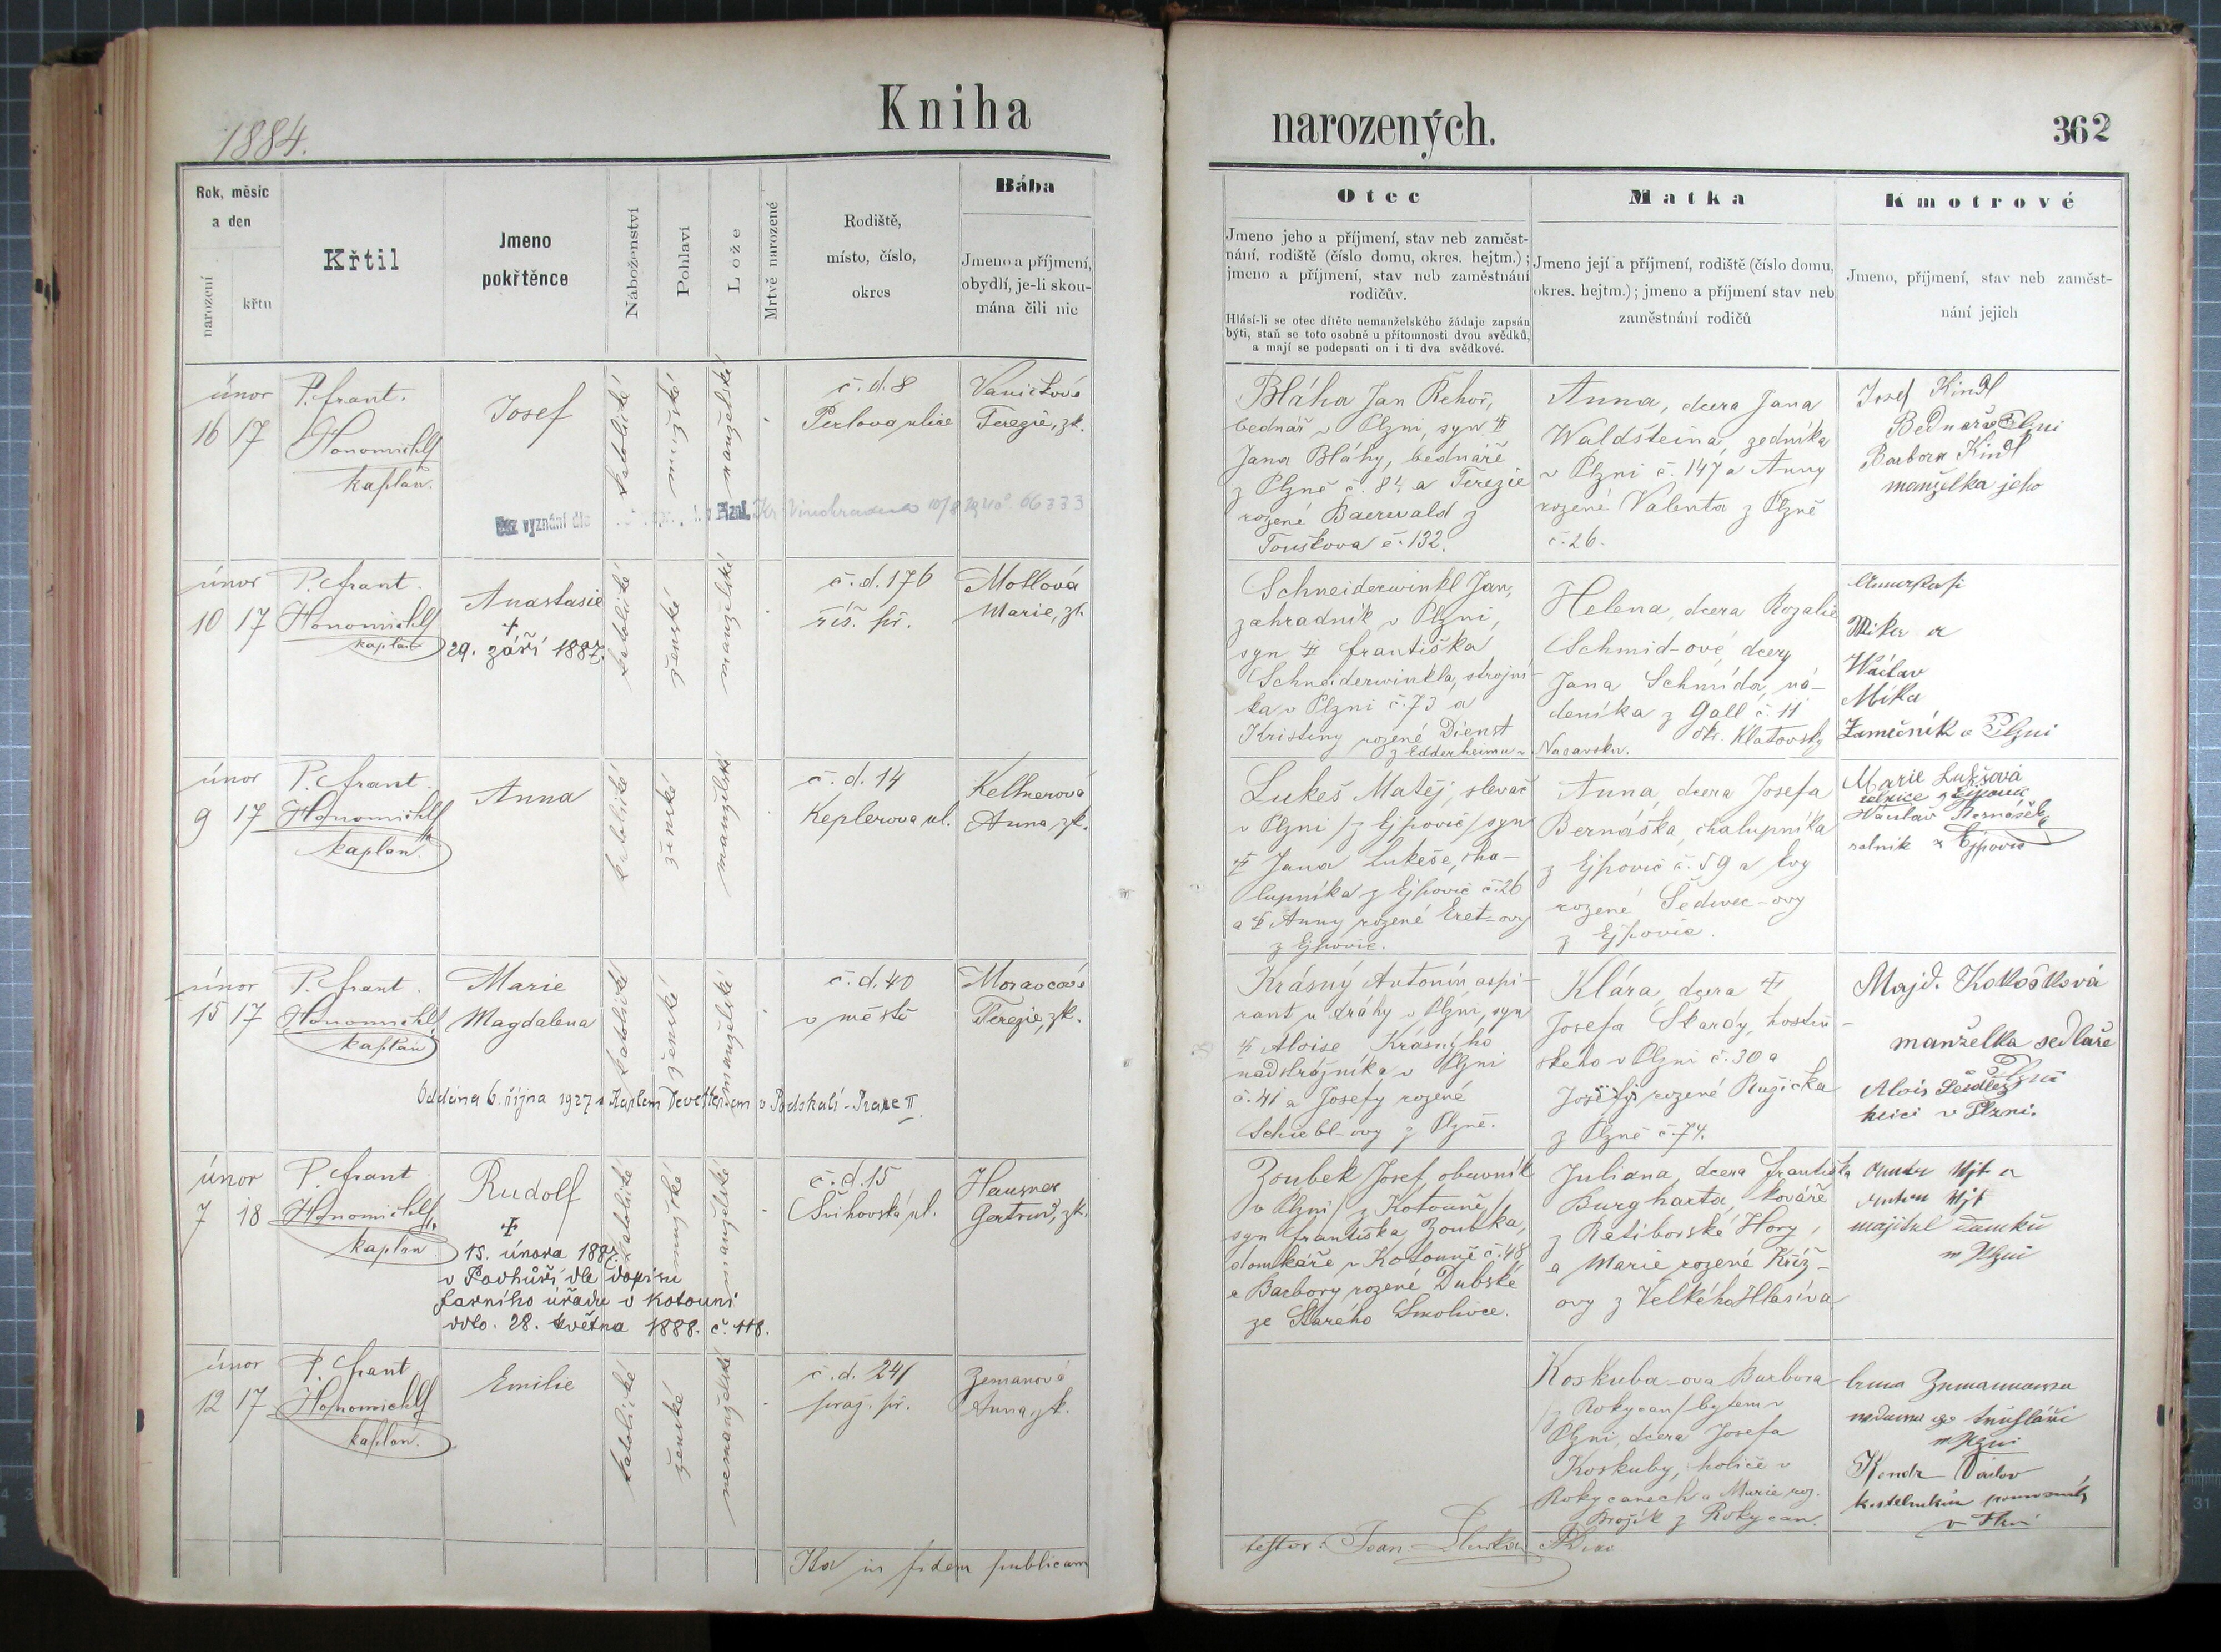 1884.
Kniha
narozených.
362
Rok, měsíc
a den
narození
křtu
Křtil
Jmeno
pokřtěnce
Náboženství
Pohlaví
Lože
Mrtvě narozené
Rodiště,
místo, číslo,
okres
Bába
Jmeno a příjmení,
obydlí, je-li skou-
mána čili nic
Otec
Jmeno jeho a příjmení, stav neb zaměst-
nání, rodiště (číslo domu, okres. hejtm.);
jmeno a příjmení, stav neb zaměstnání
rodičův.
Hlásí-li se otec dítěte nemanželského žádaje zapsán
býti, staň se toto osobně u přítomnosti dvou svědků,
a mají se podepsati on i ti dva svědkové.
Matka
Jmeno její a příjmení, rodiště (číslo domu,
okres. hejtm.); jmeno a příjmení stav neb
zaměstnání rodičů
Kmotrové
Jmeno, příjmení, stav neb zaměst-
nání jejich
únor
16 17
P. Frant.
Honomichl
kaplan.
Josef
katolické
mužské
manželské
č. d. 8
Perlova ulice
Vaničková
Terezie, zk.
bez vyznání dle
v Plzni
Vinohradech 10/8 66333
Bláha Jan Řehoř,
bednář v Plzni, syn
Jana Bláhy, bednáře
z Plzně č. 84 a Terezie
rozené Baerwald z
Touškova č. 132.
Anna, dcera Jana
Waldšteina, zedníka
v Plzni č. 147 a Anny
rozené Valenta z Plzně
č. 26.
Josef Kindl
Bednář v Plzni
Barbora Kindl
manželka jeho
únor
10 17
P. Frant.
Honomichl
kaplan
Anastasie
29. září 1887.
katolické
ženské
manželské
č. d. 176
říš. př.
Motlová
Marie, zk.
Schneiderwinkl Jan,
zahradník v Plzni,
syn Františka
Schneiderwinkla, strojní-
ka v Plzni č. 73 a
Kristiny rozené Dienst
z Edderheimu v
Nasavsku.
Helena, dcera Rozalie
Schmid-ové dcery
Jana Schmída, ná-
deníka z Gall č. 11
okr. Klatovský
Václav
Mika
Zámečník v Plzni
únor
9 17
P. Frant.
Honomichl
kaplan.
Anna
katolické
ženské
manželské
č. d. 14
Keplerova ul.
Kellnerová
Anna, zk.
Lukeš Matěj, slevač
v Plzni /z Ejpovic/ syn
Jana Lukeše, cha-
lupníka z Ejpovic č. 26
a Anny rozené Eret-ovy
z Ejpovic.
Anna, dcera Josefa
Bernáška, chalupníka
z Ejpovic č. 59 a Evy
rozené Šedivec-ovy
z Ejpovic.
Marie Lukšová
rolnice z Ejpovic
Václav Bernášek
rolník z Ejpovic
únor
15 17
P. Frant.
Honomichl
kaplan
Marie
Magdalena
katolické
ženské
manželské
č. d. 40
v městě
Moravcová
Terezie, zk.
Oddána 6. října 1927 s Karlem Devetterem v Podskalí - Praze II.
Krásný Antonín aspi-
rant u dráhy v Plzni, syn
Aloise Krásného
nadstrojníka v Plzni
č. 41 a Josefy rozené
Schiebl-ovy z Plzně.
Klára, dcera
Josefa Škardy, hostin-
ského v Plzni č. 30 a
Josefy rozené Ružička
z Plzně č. 74.
Majd. Kokošková
manželka sedláře
Plzni
Alois Seidler
v Plzni.
únor
7 18
P. Frant
Honomichl
kaplan
Rudolf
15. února 1887.
v Podhůří dle dopisu
farního úřadu v Kotouni
ddto. 28. května 1888. č. 118.
katolické
mužské
manželské
č. d. 15
Švihovská ul.
Hausner
Gertrud, zk.
Zoubek Josef, obuvník
v Plzni /z Kotouně/
syn Františka Zoubka,
domkáře v Kotouně č. 48
a Barbory rozené Dubské
ze Starého Smolivce.
Juliana, dcera Františka
Burgharta, kováře
z Ratibořské Hory,
a Marie rozené Kříž-
ovy z Velkého Hlasíva
majitel domku
v Plzni
únor
12 17
P. Frant
Honomichl
kaplan.
Emilie
katolické
ženské
nemanželské
č. d. 241
praž. př.
Zemanová
Anna, zk.
Koskuba-ova Barbora
/z Rokycan/ bytem v
Plzni, dcera Josefa
Koskuby, holiče v
Rokycanech a Marie roz.
Brožík z Rokycan.
v Plzni
Václav
v Plzni
Ita in fidem publicam
testor: Joan